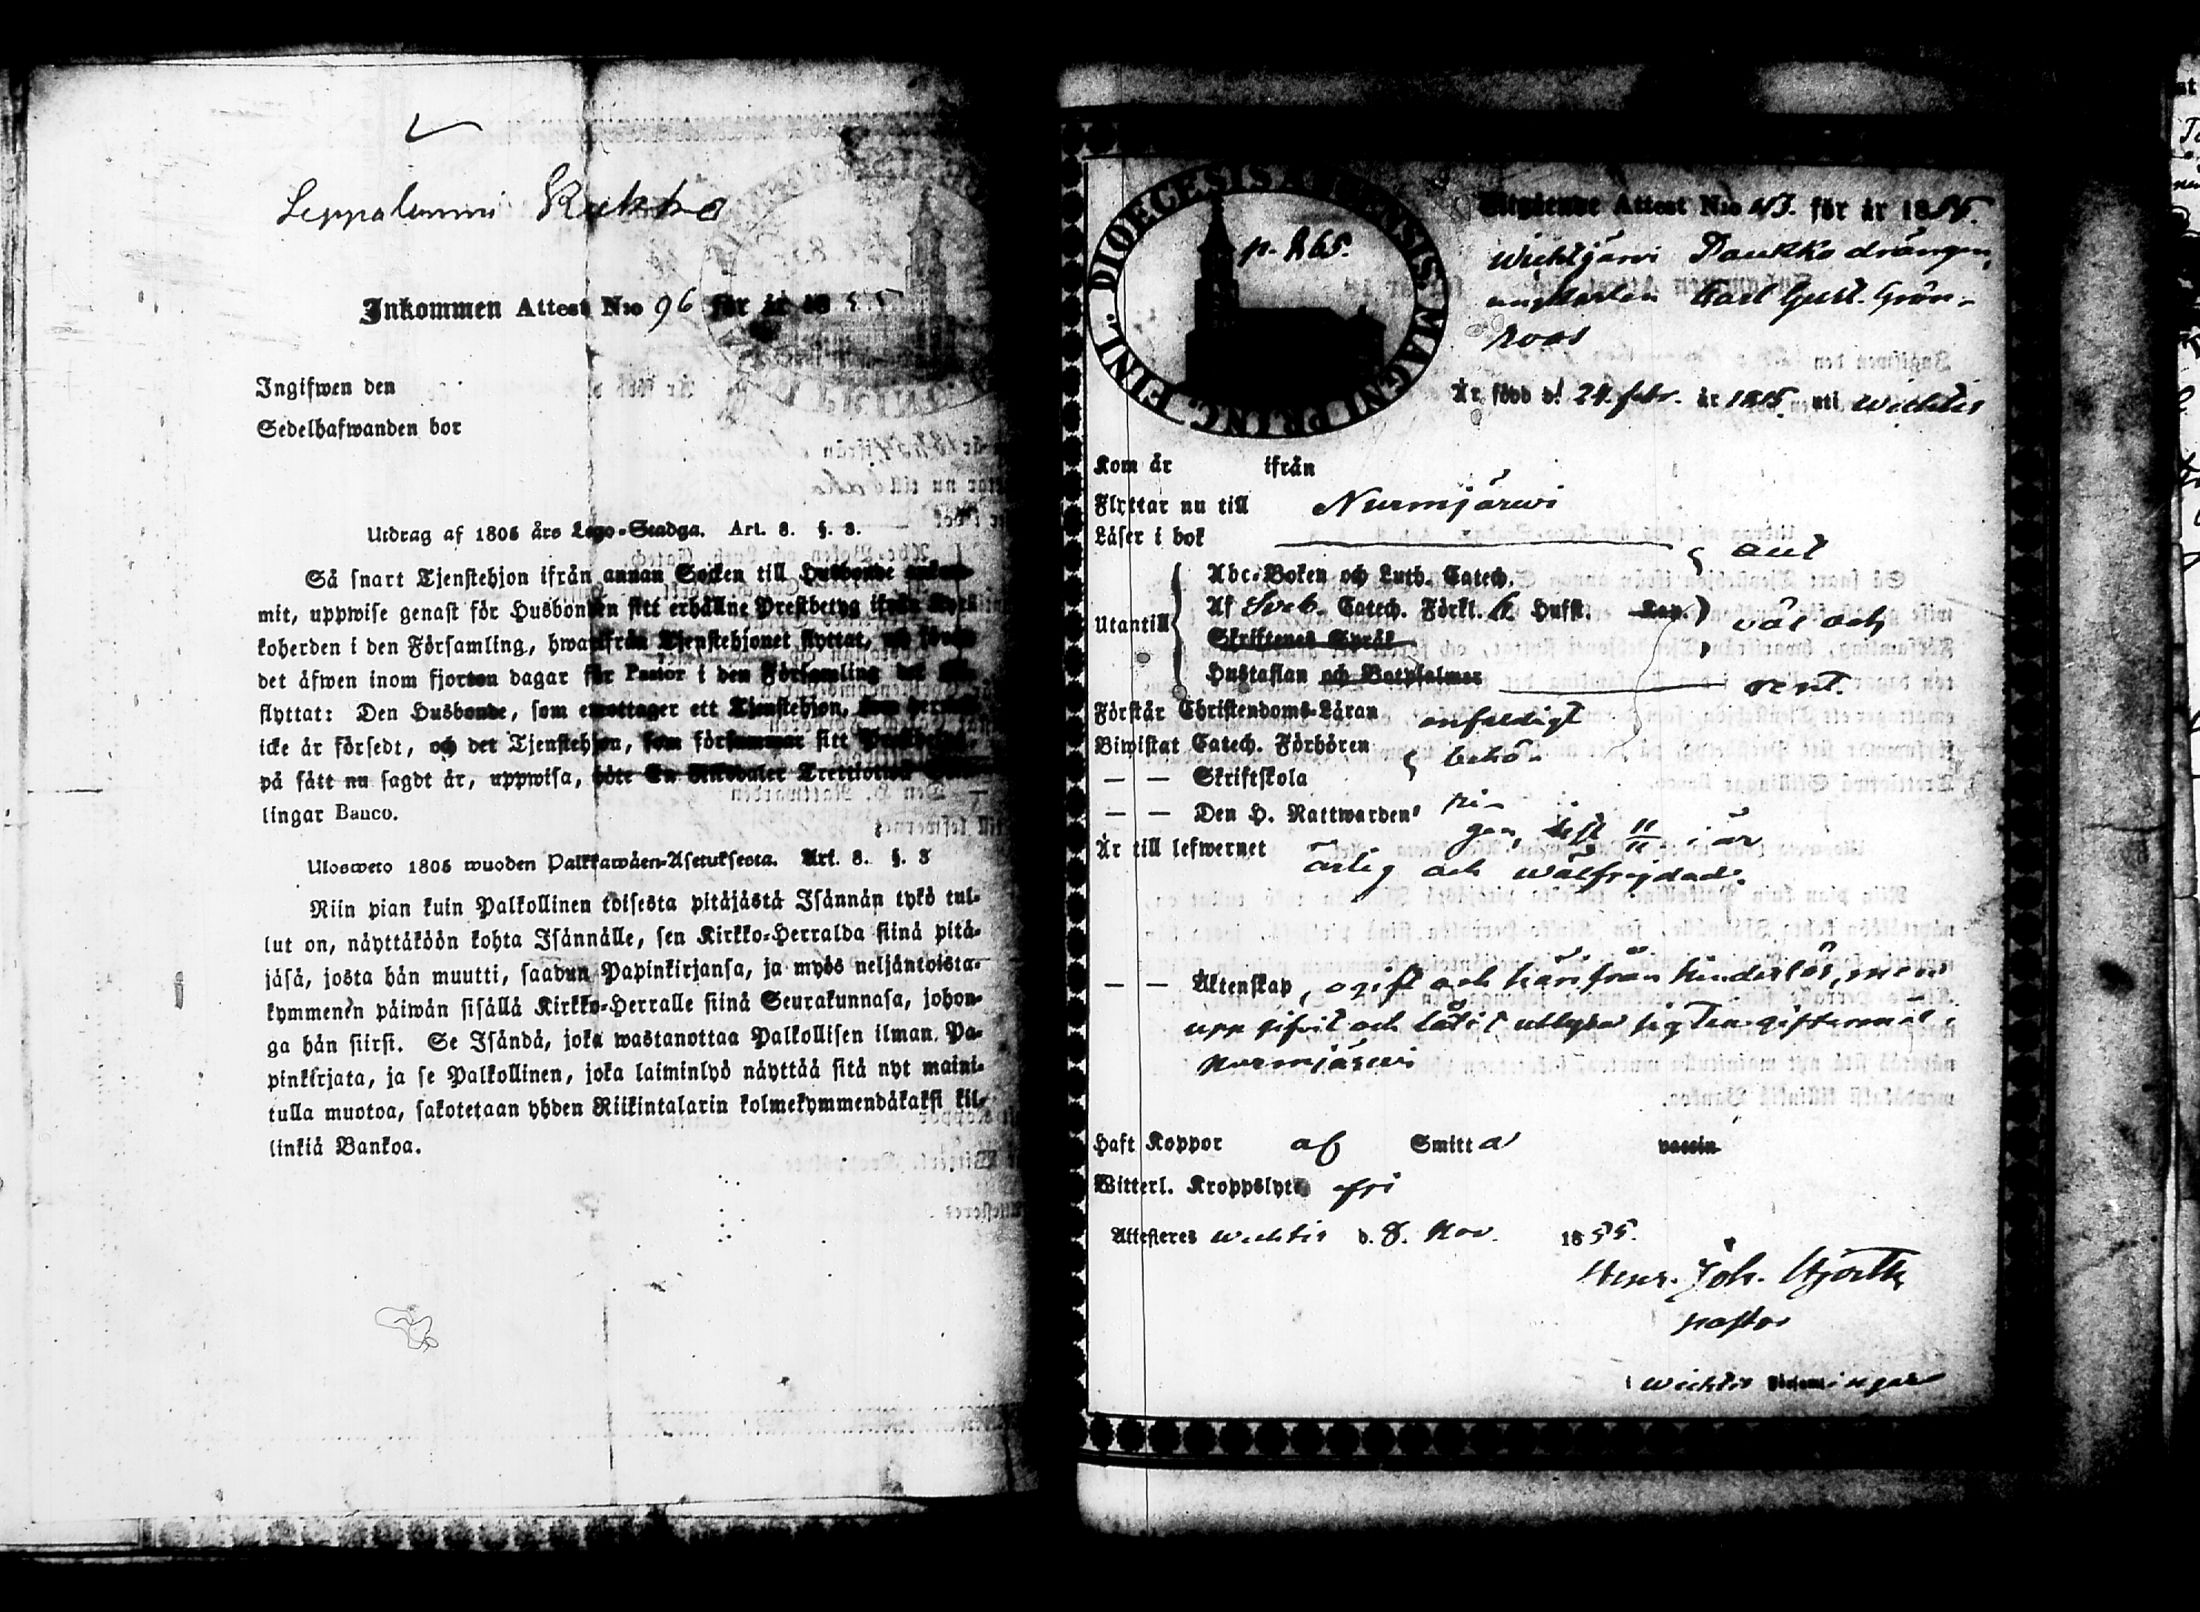 Leppälammi Kukko
Inkommen Attest N:o 96 för år 1855
Ingifwen den
Sedelhafwanden bor
Utdrag af 1805 års Lego-Stadga. Art. 8. §. 3.
Så snart Tjenstehjon ifrån annan Socken till Husbonde ankom-
mit, uppwise genast för Husbonden sitt erhållne Prestbetyg ifrån Kyrko-
koherden i den Församling, hwarifrån Tjenstehjonet flyttat, och
det äfwen inom fjorton dagar för Pastor i den Församling det
flyttat: Den Husbonde, som emottager ett Tjenstehjon, som
icke är försedt, och det Tjenstehjon, som försummar sitt
på sätt nu sagdt är, uppwisa, böte En Riksdaler Trettiotwå
lingar Banco.
Ulosweto 1805 wuoden Palkkawäen-Asetuksesta. Art. 8. §. 3
Niin pian kuin Palkollinen toisesta pitäjästä Isännän tykö tul-
lut on, näyttäköön kohta Isännälle, sen Kirkko-Herralda siinä pitä-
jäsä, josta hän muutti, saadun Papinkirjansa, ja myös neljäntoista-
kymmenen päiwän sisällä Kirkko-Herralle siinä Seurakunnasa, johon-
ga hän siirsi. Se Isändä, joka wastanottaa Palkollisen ilman Pa-
pinkirjata, ja se Palkollinen, joka laiminlyö näyttää sitä nyt maini-
tulla muotoa, sakotetaan yhden Riikintalarin kolmekymmendäkaksi kil-
linkiä Bankoa.
FINL. DIOECESIS ABOENSIS MAGNI PRINC.
p. 265.
Utgående Attest N:o 43. för år 1855.
Wichtjärvi Paukko drängen,
ungkarlen Carl Gust. Grön-
roos
Är född d. 24. febr. år 1815. uti Wichtis
Kom år ifrån
Flyttar nu till Nurmjärwi
Läser i bok
Abc-Boken och Luth. Catech.
Utantill Af Sveb. Catech. Förkl. 6 Hufst. Kap. väl och
Skriftenes Språk
Hustaflan och Botpsalmer rent.
Förstår Christendoms-Läran enfaldigt
Biwistat Catech. Förhören behö-
— — Skriftskola
— — Den H. Nattwarden ri-
gen, sist i år
Är till lefwernet ärlig och wälfrejdad.
— — Äktenskap, ogift och härifrån hinderlös, men
uppgifvit och låtit utlysa sig till giftermål i
Nurmjärwi
Haft Koppor af Smitta vaccin
Witterl. Kroppslyte fri
Attesteres Wichtis d. 8. Nov. 1855.
Henr. Joh. Hjorth
pastor
i Wichtis Församlingar